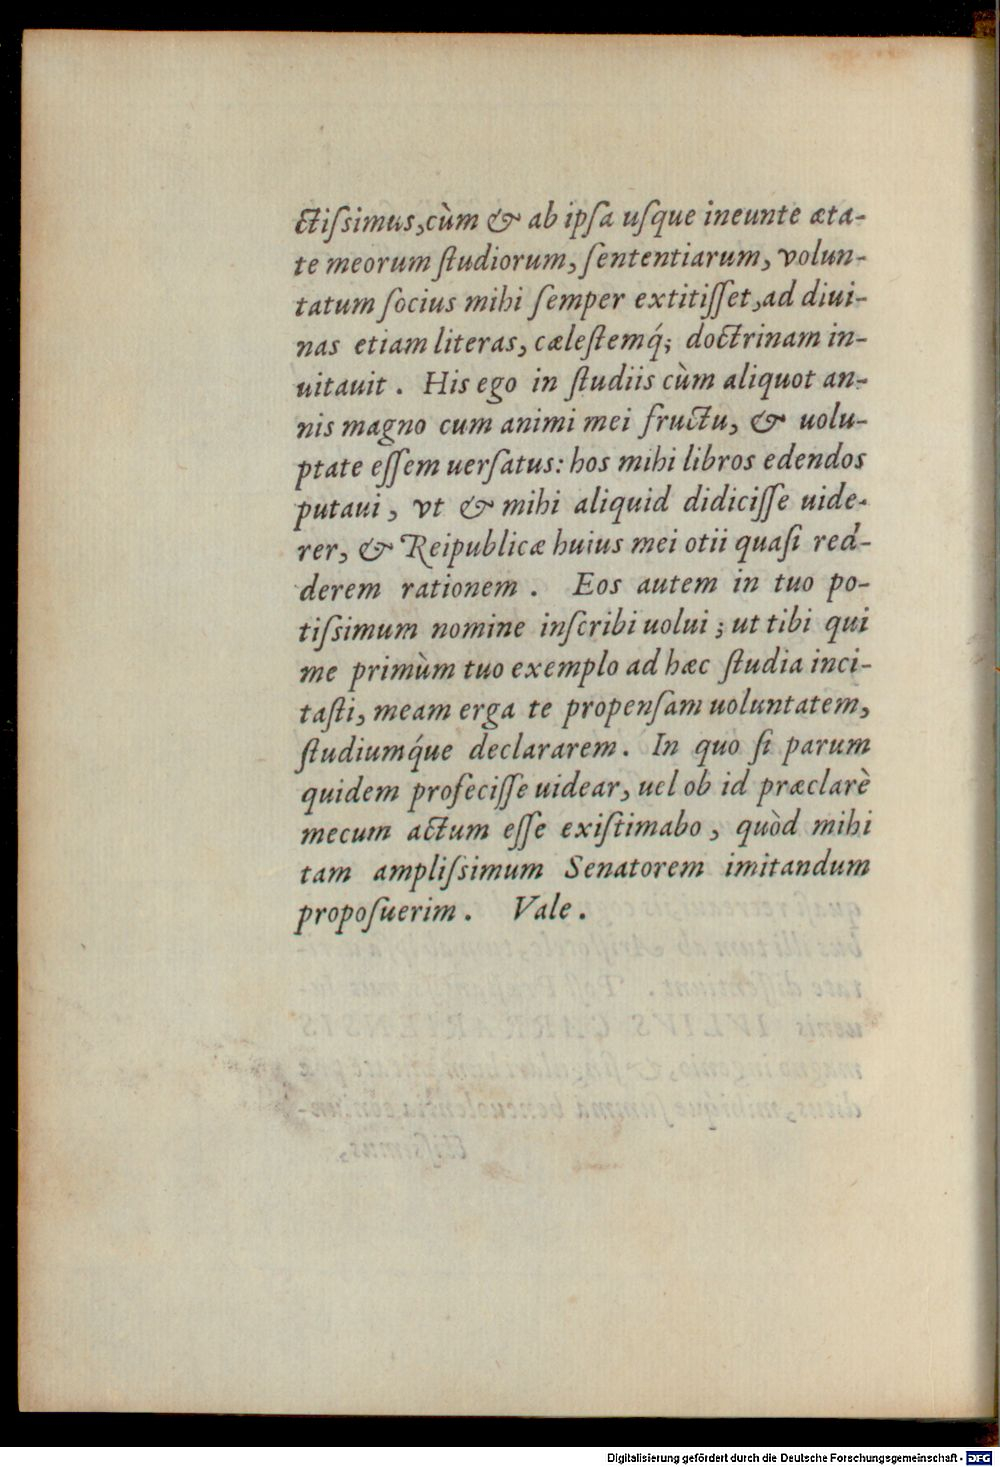 ctiſsimus, cùm & ab ipſa uſque ineunte æta-
te meorum ſtudiorum, ſententiarum, volun-
tatum ſocius mihi ſemper extitiſſet, ad diui-
nas etiam literas, cæleſtemq́; doctrinam in-
uitauit. His ego in ſtudiis cùm aliquot an-
nis magno cum animi mei fructu, & uolu-
ptate eſſem uerſatus: hos mihi libros edendos
putaui, vt & mihi aliquid didiciſſe uide-
rer, & Reipublicæ huius mei otii quaſi red-
derem rationem. Eos autem in tuo po-
tiſsimum nomine inſcribi uolui; ut tibi qui
me primùm tuo exemplo ad hæc ſtudia inci-
taſti, meam erga te propenſam uoluntatem,
ſtudiumq́ue declararem. In quo ſi parum
quidem profeciſſe uidear, uel ob id præclarè
mecum actum eſſe exiſtimabo, quòd mihi
tam ampliſsimum Senatorem imitandum
propoſuerim. Vale.
Digitalisierung gefördert durch die Deutsche Forschungsgemeinschaft - DFG